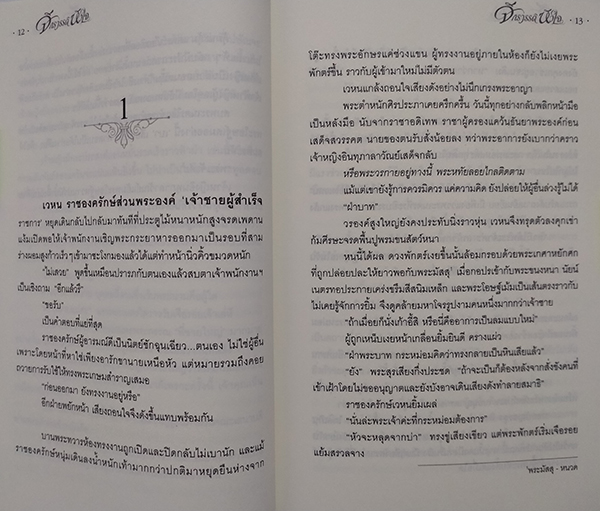 · 12 ·
จักรวรรดิหัวใจ
1
เวหน ราชองครักษ์ส่วนพระองค์ 'เจ้าชายผู้สำเร็จ
ราชการ' หยุดเดินกลับไปกลับมาทันทีที่ประตูไม้หนาหนักสูงจรดเพดาน
แง้มเปิดพอให้เจ้าพนักงานเชิญพระกระยาหารออกมาเป็นรอบที่สาม
ร่างผอมสูงก้าวเร็วๆ เข้ามาชะโงกมองแล้วได้แต่ทำหน้านิ่วคิ้วขมวดหนัก
"ไม่เสวย" พูดขึ้นเหมือนปรารภกับตนเองแล้วสบตาเจ้าพนักงานฯ
เป็นเชิงถาม "อีกแล้วรึ"
"ขอรับ"
เป็นคำตอบที่แย่ที่สุด
ราชองครักษ์ผู้อารมณ์ดีเป็นนิตย์ชักฉุนเฉียว...ตนเอง ไม่ใช่ผู้อื่น
เพราะโดยหน้าที่หาใช่เพียงอารักขานายเหนือหัว แต่หมายรวมถึงคอย
ถวายการรับใช้ให้ทรงพระเกษมสำราญเสมอ
"ก่อนออกมา ยังทรงงานอยู่หรือ"
อีกฝ่ายพยักหน้า เสียงถอนใจจึงดังขึ้นแทบพร้อมกัน
บานพระทวารห้องทรงงานถูกเปิดและปิดกลับไม่เบานัก และแม้
ราชองครักษ์หนุ่มเดินลงน้ำหนักเท้ามากกว่าปกติมาหยุดยืนห่างจาก
จักรวรรดิหัวใจ
· 13 ·
โต๊ะทรงพระอักษรแค่ช่วงแขน ผู้ทรงงานอยู่ภายในห้องก็ยังไม่เงยพระ
พักตร์ขึ้น ราวกับผู้เข้ามาใหม่ไม่มีตัวตน
เวหนแกล้งถอนใจเสียงดังอย่างไม่นึกเกรงพระอาญา
พระตำหนักศิรประภาเคยครึกครื้น วันนี้ทุกอย่างกลับพลิกหน้ามือ
เป็นหลังมือ นับจากราชาอดิเทพ ราชาผู้ครองแคว้นธันยาพระองค์ก่อน
เสด็จสวรรคต นายของตนรับสั่งน้อยลง ทว่าพระอาการยังเบากว่าคราว
เจ้าหญิงอินทุภาลาวัณย์เสด็จกลับ
หรือพระวรกายอยู่ทางนี้ พระหทัยลอยไกลติดตาม
แม้แต่เขายังรู้การควรมิควร แค่ความคิด ยังปล่อยให้ผู้อื่นล่วงรู้ไม่ได้
"ฝ่าบาท"
วรองค์สูงใหญ่ยังคงประทับนิ่งราวหุ่น เวหนจึงทรุดตัวลงคุกเข่า
ก้มศีรษะจรดพื้นปูพรมขนสัตว์หนา
หนนี้ได้ผล ดวงพักตร์เงยขึ้นนั้นล้อมกรอบด้วยพระเกศาหยักศก
ที่ถูกปล่อยปละให้ยาวพอกับพระมัสสุ¹ เมื่อกอปรเข้ากับพระขนงหนา นัยน์
เนตรทอประกายเคร่งขรึมสีสนิมเหล็ก และพระโอษฐ์เม้มเป็นเส้นตรงราวกับ
ไม่เคยรู้จักการยิ้ม จึงดูคล้ายมหาโจรรูปงามคนหนึ่งมากกว่าเจ้าชาย
"ถ้าเมื่อยก็นั่งเก้าอี้สิ หรือนี่คืออาการเป็นลมแบบใหม่"
ผู้ถูกเหน็บเงยหน้าเกลื่อนยิ้มยินดี ครางแผ่ว
"ฝ่าพระบาท กระหม่อมคิดว่าทรงกลายเป็นหินเสียแล้ว"
"ยัง" พระสุรเสียงกึ่งประชด "ถ้าจะเป็นก็ต้องหลังจากสั่งขังคนที่
เข้าเฝ้าโดยไม่ขออนุญาต และยังบังอาจเดินเสียงดังทำลายสมาธิ"
ราชองครักษ์เวหนยิ้มเผล่
"นั่นล่ะพระเจ้าค่ะที่กระหม่อมต้องการ"
"หัวจะหลุดจากบ่า" ทรงขู่เสียงเขียว แต่พระพักตร์เริ่มเจือรอย
แย้มสรวลจาง
¹พระมัสสุ - หนวด